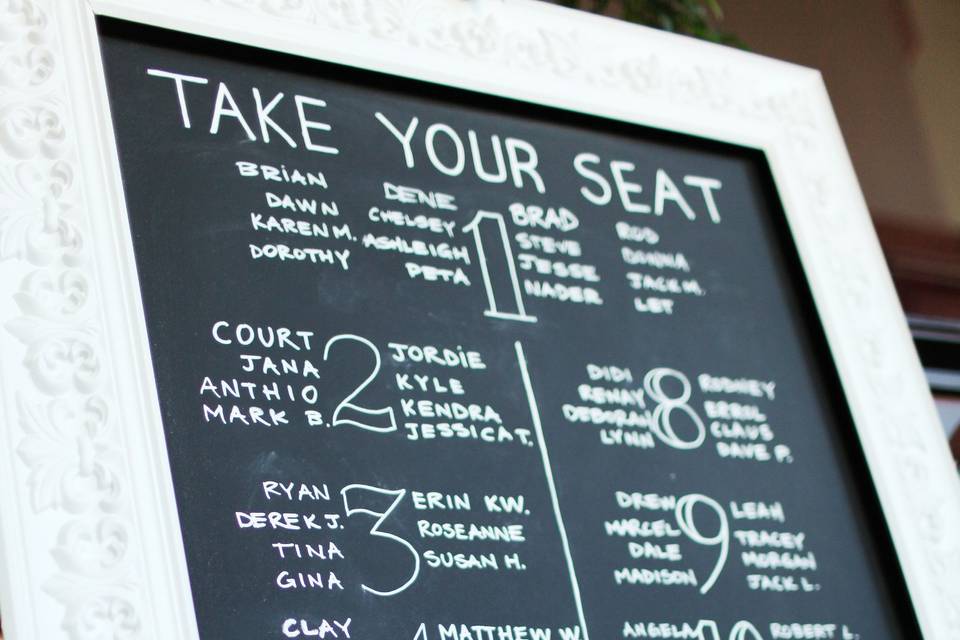 TAKE YOUR SEAT
BRIAN
DAWN
KAREN M.
DOROTHY
DENE
CHELSEY
ASHLEIGH
PETA
1
BRAD
STEVE
JESSE
NADER
ROD
DONNA
JACK M.
LET
COURT
JANA
ANTHIO
MARK B.
2
JORDIE
KYLE
KENDRA
JESSICA T.
RYAN
DEREK J.
TINA
GINA
3
ERIN KW.
ROSEANNE
SUSAN H.
CLAY
MATTHEW W
DIDI
RENAY
DEBORAH
LYNN
8
RODNEY
ERROL
CLAUS
DAVE P.
DREW
MARCEL
DALE
MADISON
9
LEAH
TRACEY
MORGAN
JACK L.
ANGELA
10
ROBERT L.